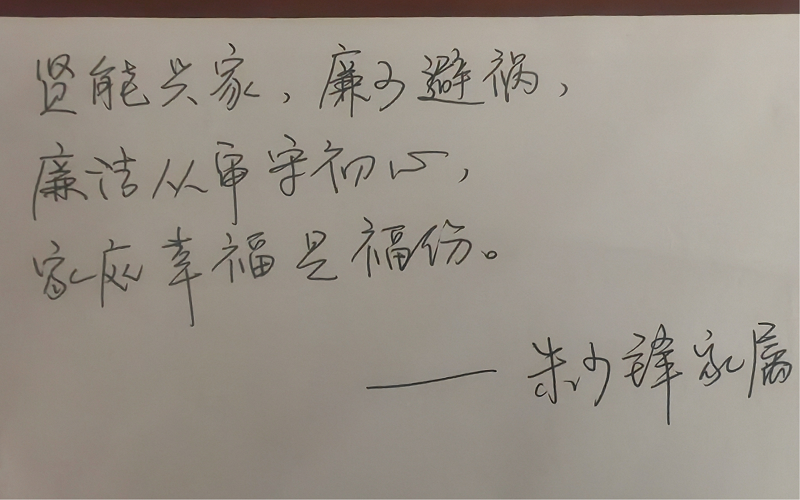 贤能兴家，廉可避祸，
廉洁从审守初心，
家庭幸福是福份。
——朱少锋家属